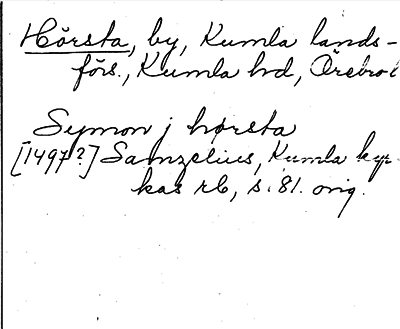 Hörsta, by, Kumla lands-
förs., Kumla hd, Örebro l
Symon j hørsta
[1497?] Samzelius, Kumla kyr
kas rb, s. 81. orig.